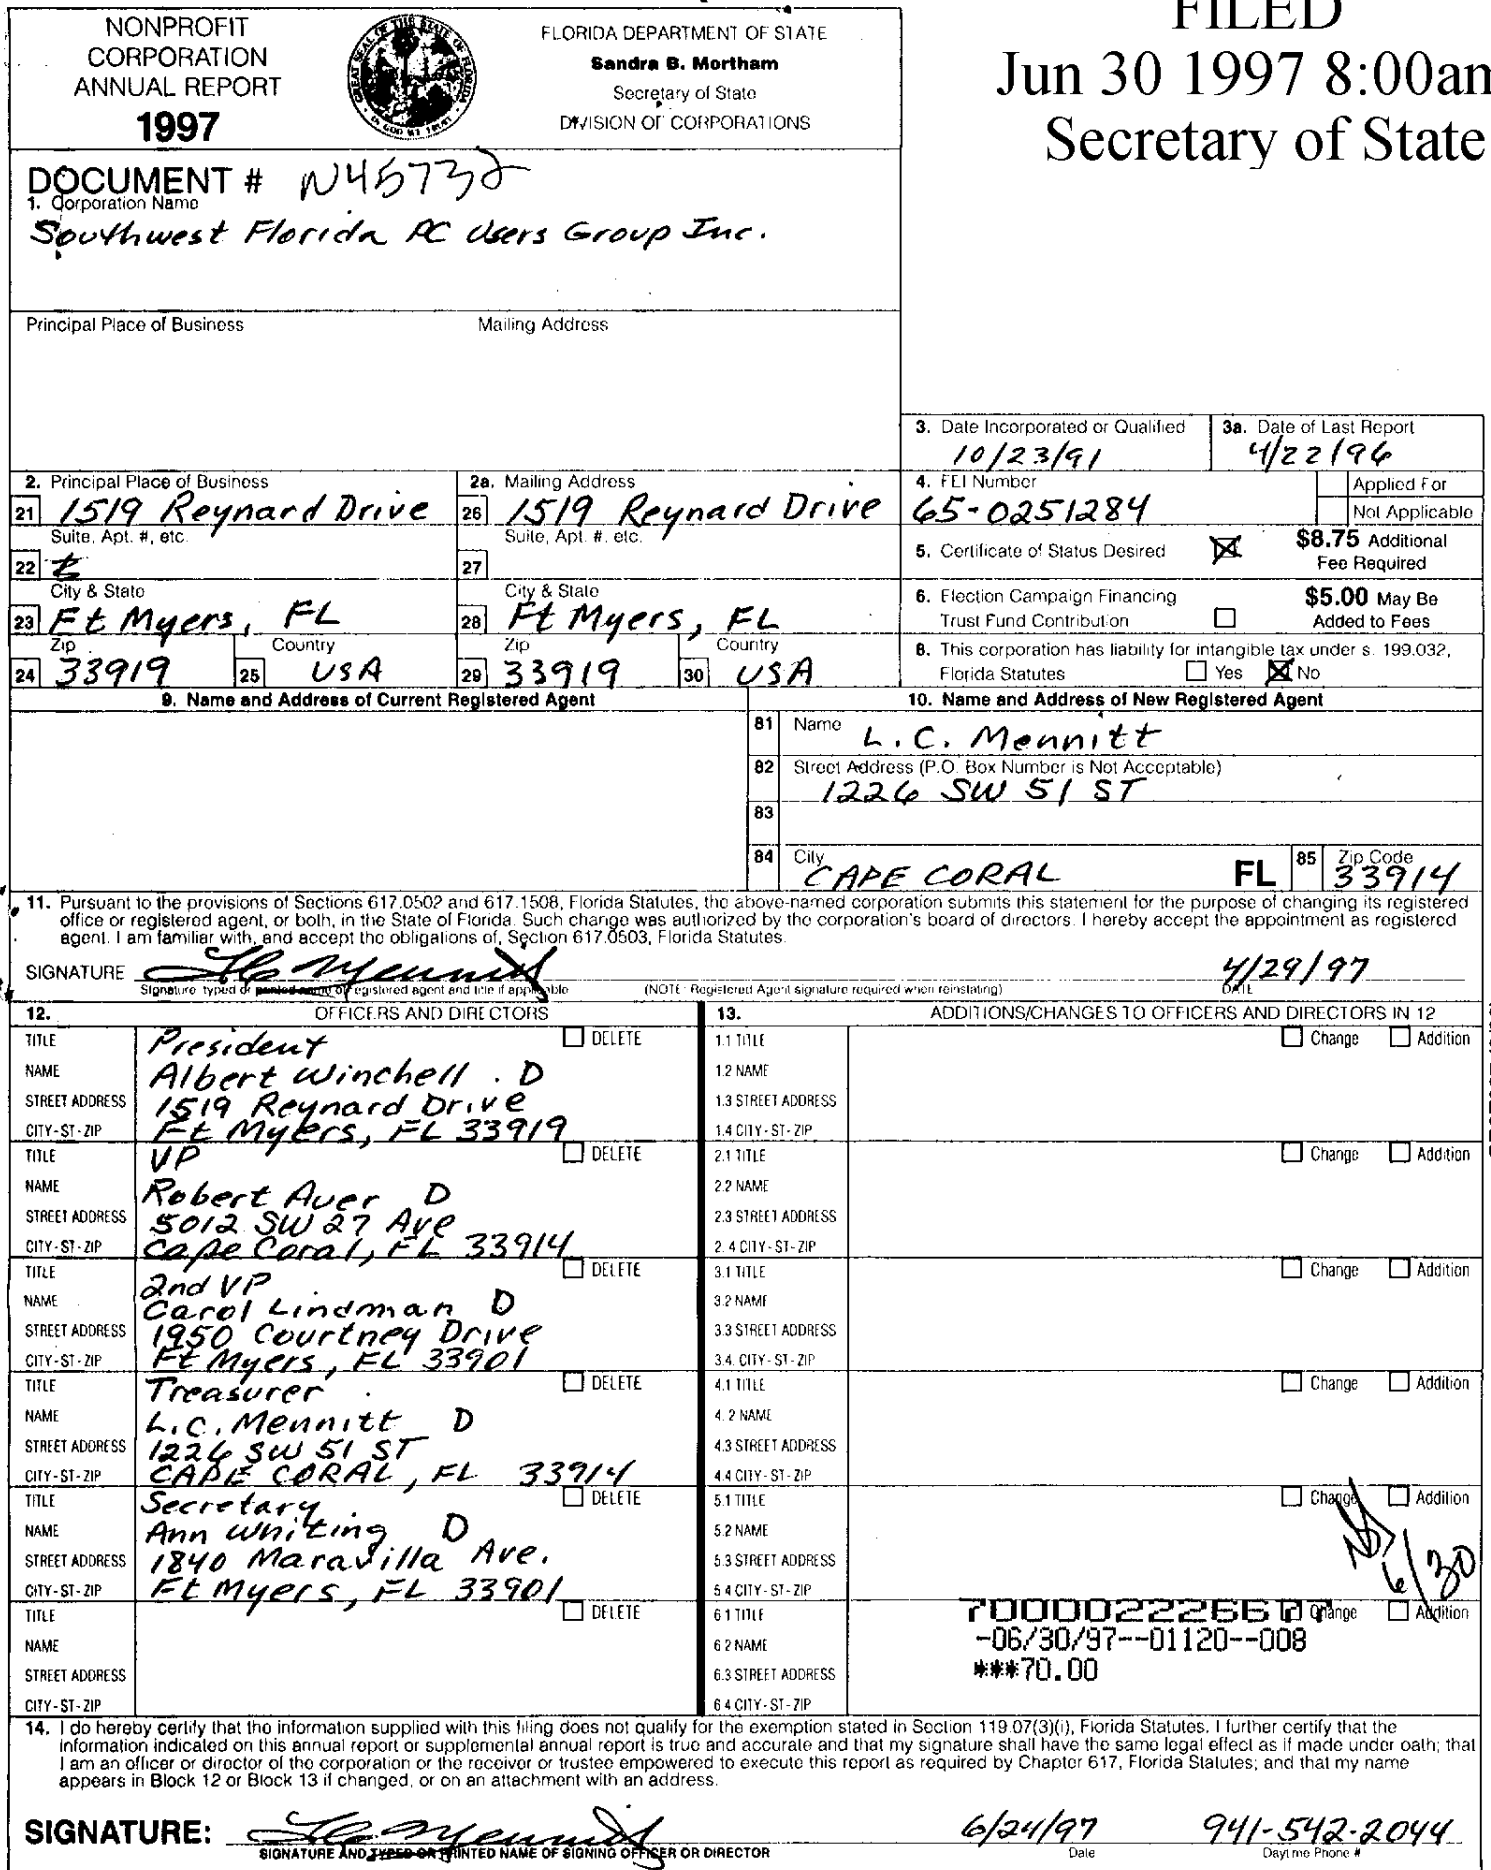 NONPROFIT
CORPORATION
ANNUAL REPORT
1997
FLORIDA DEPARTMENT OF STATE
Sandra B. Mortham
Secretary of State
DIVISION OF CORPORATIONS
FILED
Jun 30 1997 8:00am
Secretary of State
DOCUMENT # N45732
1. Corporation Name
Southwest Florida PC Users Group Inc.
Principal Place of Business Mailing Address
3. Date Incorporated or Qualified
10/23/91
3a. Date of Last Report
4/22/96
2. Principal Place of Business
21 1519 Reynard Drive
Suite, Apt. #, etc.
22
City & State
23 Ft Myers, FL
Zip Country
24 33919 25 USA
2a. Mailing Address
26 1519 Reynard Drive
Suite, Apt. #, etc.
27
City & State
28 Ft Myers, FL
Zip Country
29 33919 30 USA
4. FEI Number
65-0251284
Applied For
Not Applicable
5. Certificate of Status Desired $8.75 Additional
Fee Required
6. Election Campaign Financing
Trust Fund Contribution
$5.00 May Be
Added to Fees
8. This corporation has liability for intangible tax under s. 199.032,
Florida Statutes Yes No
9. Name and Address of Current Registered Agent
10. Name and Address of New Registered Agent
81 Name
L.C. Mennitt
82 Street Address (P.O. Box Number is Not Acceptable)
1226 SW 51 ST
83
84 City
CAPE CORAL FL
85 Zip Code
33914
11. Pursuant to the provisions of Sections 617.0502 and 617.1508, Florida Statutes, the above-named corporation submits this statement for the purpose of changing its registered
office or registered agent, or both, in the State of Florida. Such change was authorized by the corporation's board of directors. I hereby accept the appointment as registered
agent. I am familiar with, and accept the obligations of, Section 617.0503, Florida Statutes.
SIGNATURE 4/29/97
Signature typed or printed name of registered agent and title if applicable (NOTE: Registered Agent signature required when reinstating) DATE
12. OFFICERS AND DIRECTORS
TITLE President DELETE
NAME Albert Winchell . D
STREET ADDRESS 1519 Reynard Drive
CITY-ST-ZIP Ft Myers, FL 33919
TITLE VP DELETE
NAME Robert Auer D
STREET ADDRESS 5012 SW 27 Ave
CITY-ST-ZIP Cape Coral, FL 33914
TITLE 2nd VP DELETE
NAME Carol Lindman D
STREET ADDRESS 1950 Courtney Drive
CITY-ST-ZIP Ft Myers, FL 33901
TITLE Treasurer DELETE
NAME L.C. Mennitt D
STREET ADDRESS 1226 SW 51 ST
CITY-ST-ZIP CAPE CORAL, FL 33914
TITLE Secretary DELETE
NAME Ann Whiting D
STREET ADDRESS 1840 Maravilla Ave.
CITY-ST-ZIP Ft Myers, FL 33901
TITLE DELETE
NAME
STREET ADDRESS
CITY-ST-ZIP
13. ADDITIONS/CHANGES TO OFFICERS AND DIRECTORS IN 12
1.1 TITLE Change Addition
1.2 NAME
1.3 STREET ADDRESS
1.4 CITY-ST-ZIP
2.1 TITLE Change Addition
2.2 NAME
2.3 STREET ADDRESS
2.4 CITY-ST-ZIP
3.1 TITLE Change Addition
3.2 NAME
3.3 STREET ADDRESS
3.4. CITY-ST-ZIP
4.1 TITLE Change Addition
4.2 NAME
4.3 STREET ADDRESS
4.4 CITY-ST-ZIP
5.1 TITLE Change Addition
5.2 NAME
5.3 STREET ADDRESS
5.4 CITY-ST-ZIP
6/30
6.1 TITLE Change Addition
6.2 NAME -06/30/97--01120--008
6.3 STREET ADDRESS ***70.00
6.4 CITY-ST-ZIP
14. I do hereby certify that the information supplied with this filing does not qualify for the exemption stated in Section 119.07(3)(i), Florida Statutes. I further certify that the
information indicated on this annual report or supplemental annual report is true and accurate and that my signature shall have the same legal effect as if made under oath; that
I am an officer or director of the corporation or the receiver or trustee empowered to execute this report as required by Chapter 617, Florida Statutes; and that my name
appears in Block 12 or Block 13 if changed, or on an attachment with an address.
SIGNATURE: 6/24/97 941-542-2044
SIGNATURE AND TYPED OR PRINTED NAME OF SIGNING OFFICER OR DIRECTOR Date Daytime Phone #